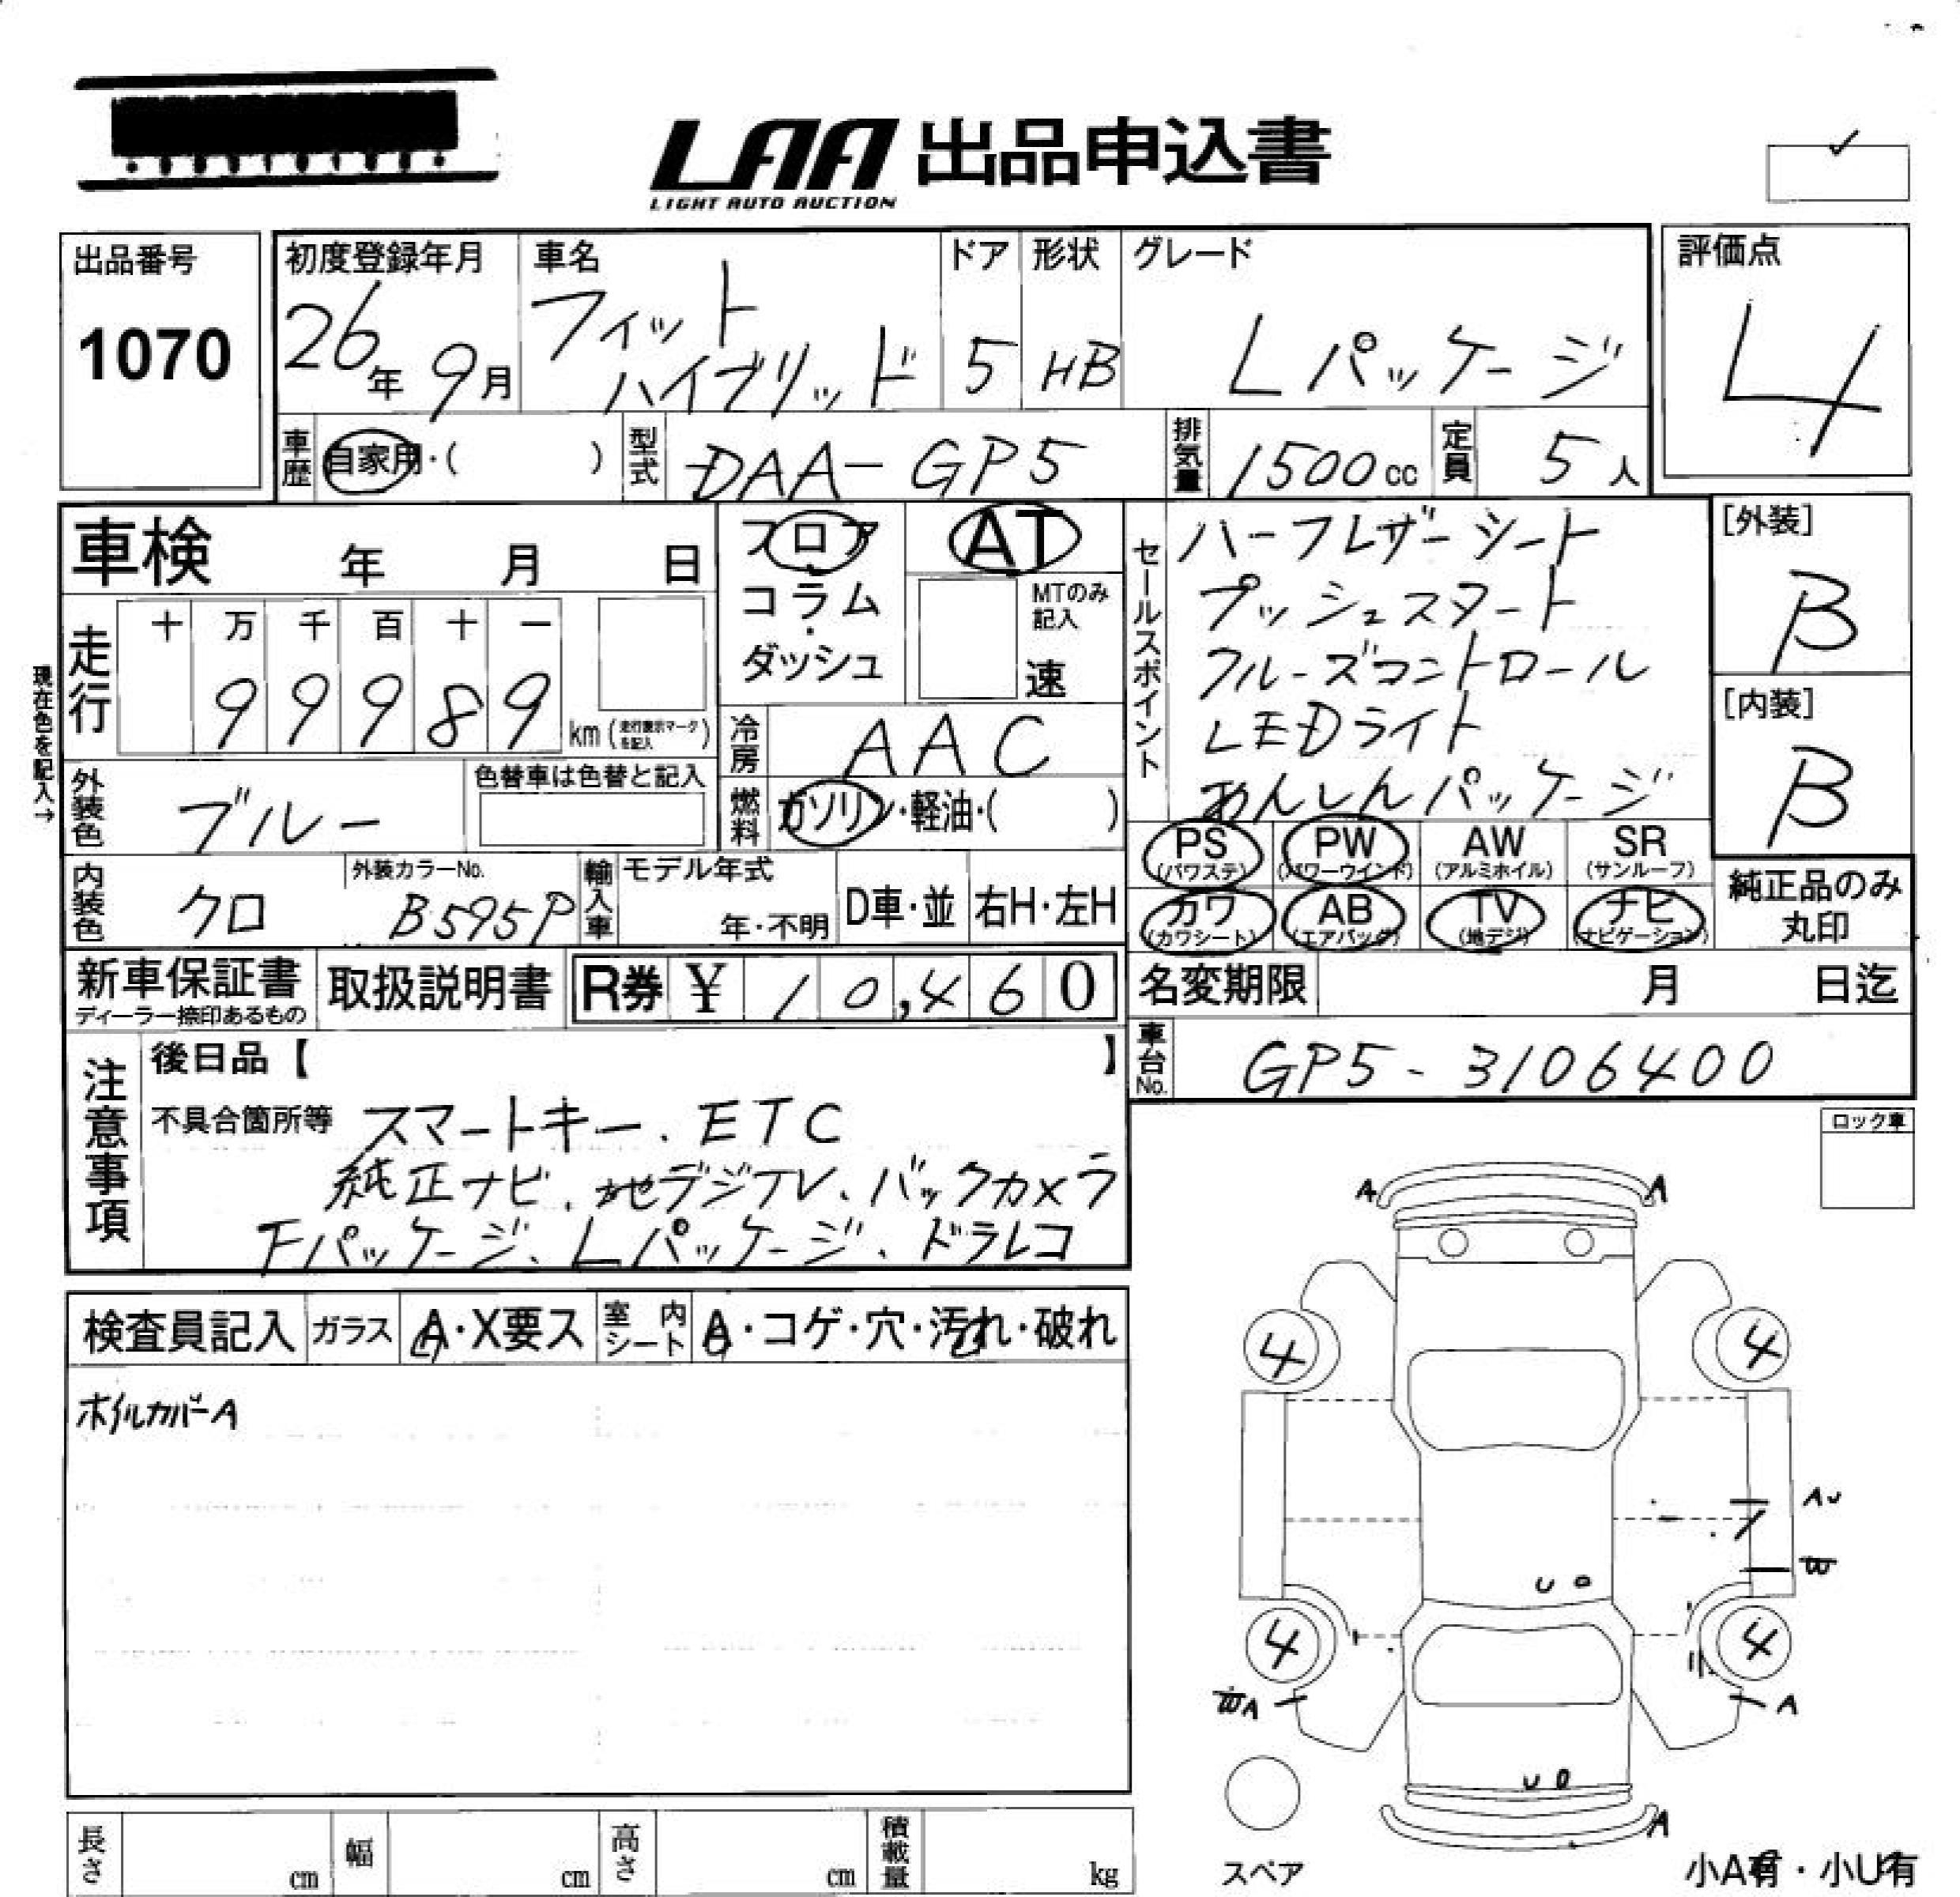 LAA 出品申込書
LIGHT AUTO AUCTION
出品番号
1070
初度登録年月
26年 9月
車名
フィット
ハイブリッド
ドア
5
形状
HB
グレード
Lパッケージ
評価点
4
車歴
自家用・( )
型式
DAA-GP5
排気量
1500cc
定員
5人
車検 年 月 日
走行
十 万 千 百 十 一
9 9 9 8 9
km (走行表示マークを記入)
現在色を記入→
フロア
コラム
・
ダッシュ
AT
MTのみ記入
速
冷房
AAC
燃料
ガソリン・軽油・( )
セールスポイント
ハーフレザーシート
プッシュスタート
クルーズコントロール
LEDライト
あんしんパッケージ
[外装]
B
[内装]
B
外装色
ブルー
色替車は色替と記入
内装色
クロ
外装カラーNo.
B595P
輸入車
モデル年式
年・不明
D車・並
右H・左H
PS
(パワステ)
PW
(パワーウインド)
AW
(アルミホイル)
SR
(サンルーフ)
カワ
(カワシート)
AB
(エアバッグ)
TV
(地デジ)
ナビ
(ナビゲーション)
純正品のみ
丸印
新車保証書
ディーラー捺印あるもの
取扱説明書
R券 ¥ 10,460
名変期限 月 日迄
車台No.
GP5-3106400
注意事項
後日品【 】
不具合箇所等 スマートキー、ETC
純正ナビ、地デジTV、バックカメラ
Fパッケージ、Lパッケージ、ドラレコ
ロック車
検査員記入
ガラス
A・X要ス
室内シート
A・コゲ・穴・汚れ・破れ
ホイルカバーA
A A
4 4
AU
W
U
4 4
WA A
U
A
スペア
小A有・小U有
長さ cm
幅 cm
高さ cm
積載量 kg